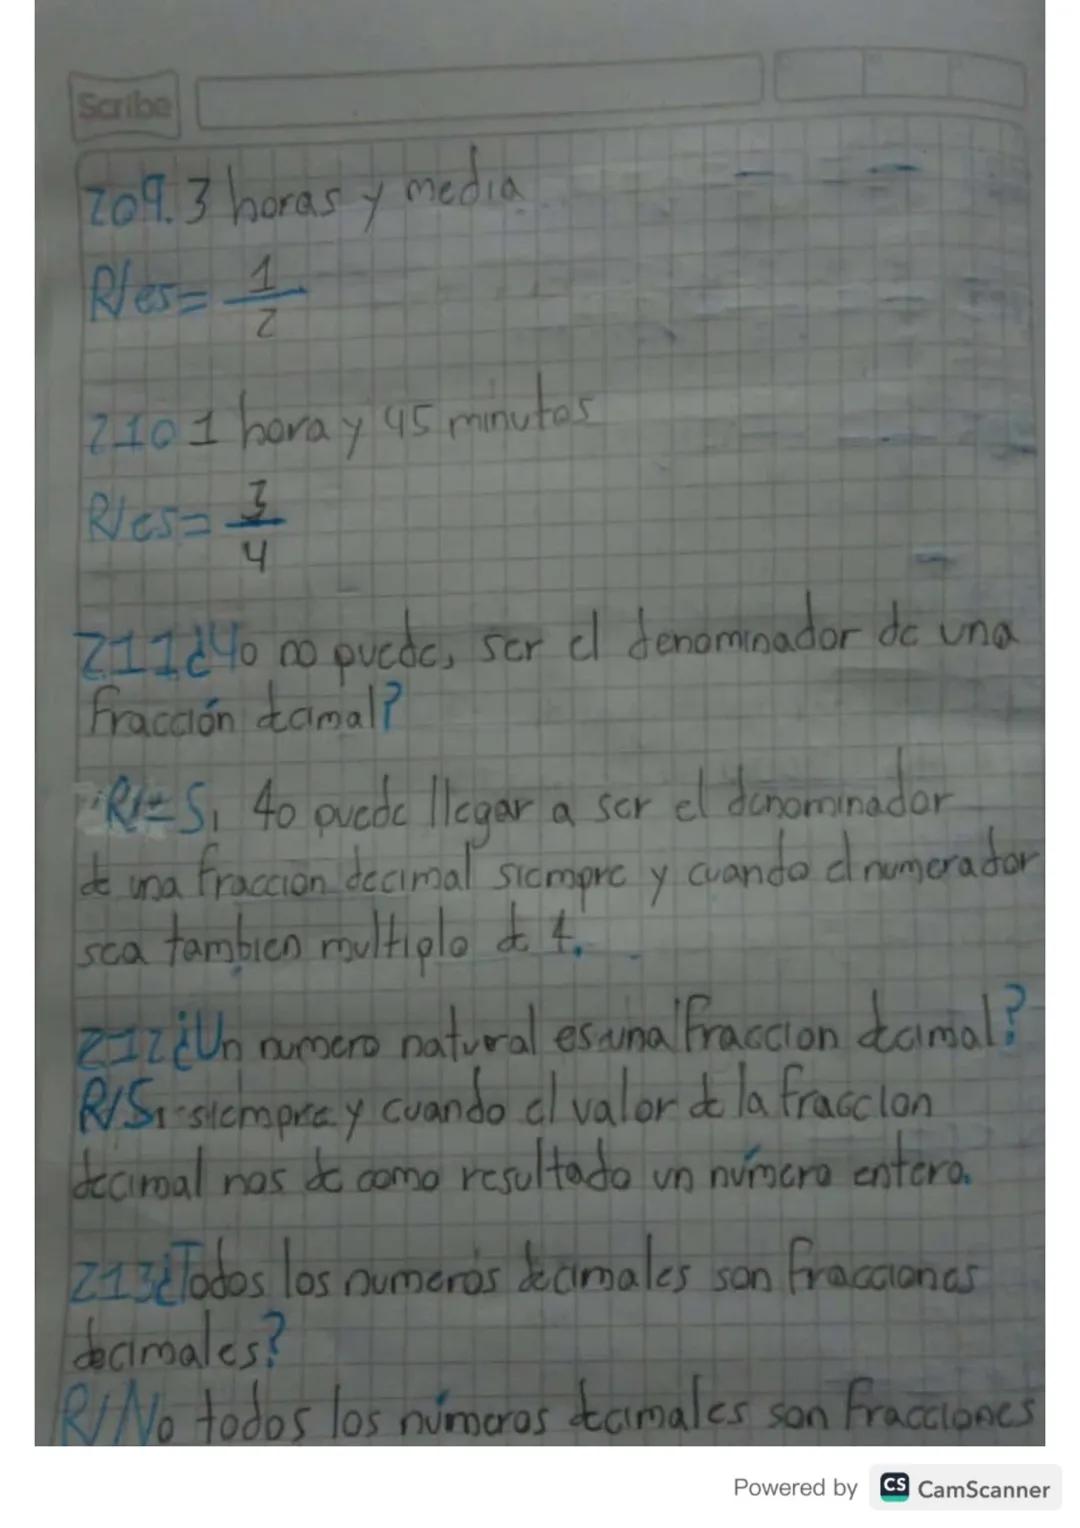 Scribe
209. 3 horas y media
R/es= 1/2
210 1 hora y 45 minutos
R/es= 3/4
211¿40 no puede, ser el denominador de una
fracción decimal?
R/= Si 40 puede llegar a ser el denominador
de una fraccion decimal siempre y cuando el numerador
sea tambien multiplo de 4.
212¿Un numero natural es una fraccion decimal?
R/Si siempre y cuando el valor de la fraccion
decimal nos de como resultado un número entero.
213¿Todos los numeros decimales son fracciones
decimales?
R/No todos los números decimales son fracciones
Powered by CS CamScanner